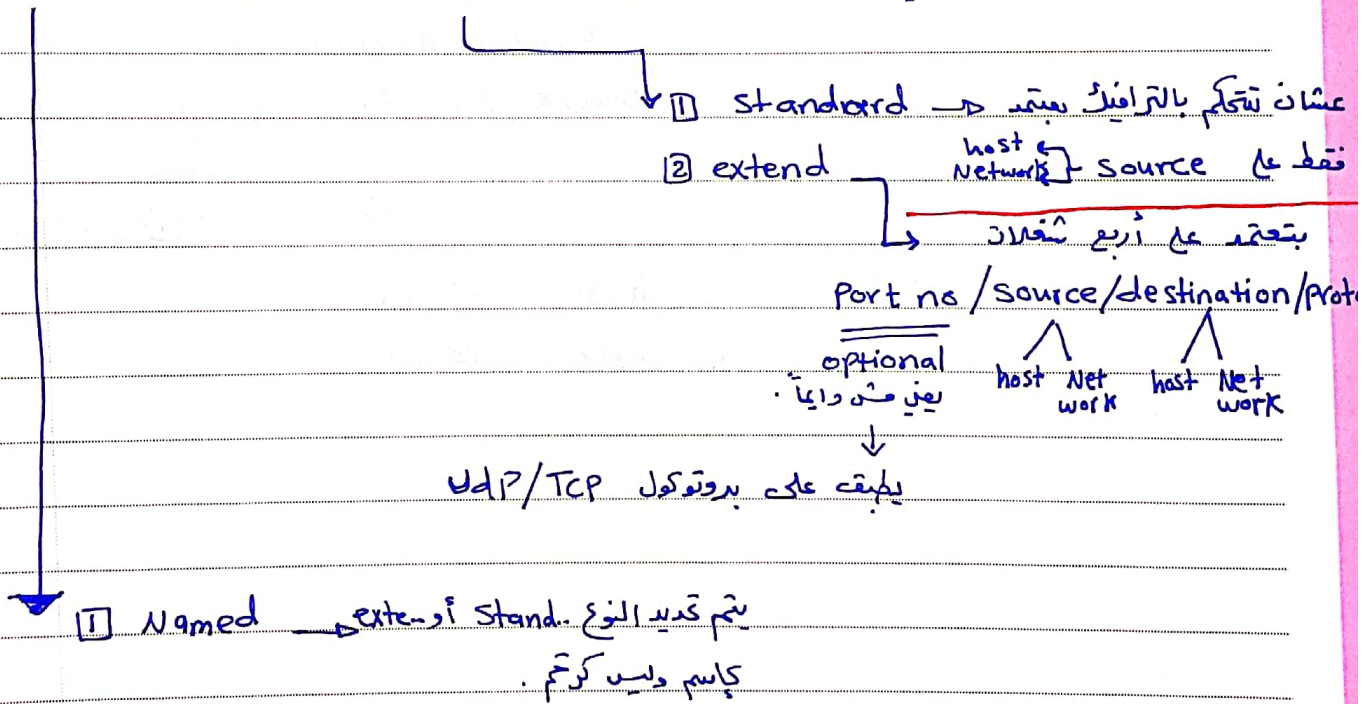 1 Standard → عشان نتحكم بالترافيك بيعتمد
فقط على source { host Network
2 extend
بتعتمد على أربع شغلات
Port no / source / destination /
optional
يعني مش دايماً .
host Net work host Net work
يطبق على بروتوكول UdP/TCP
1 Named → يتم تحديد النوع Stand.. أو exte..
كإسم وليس كرقم .